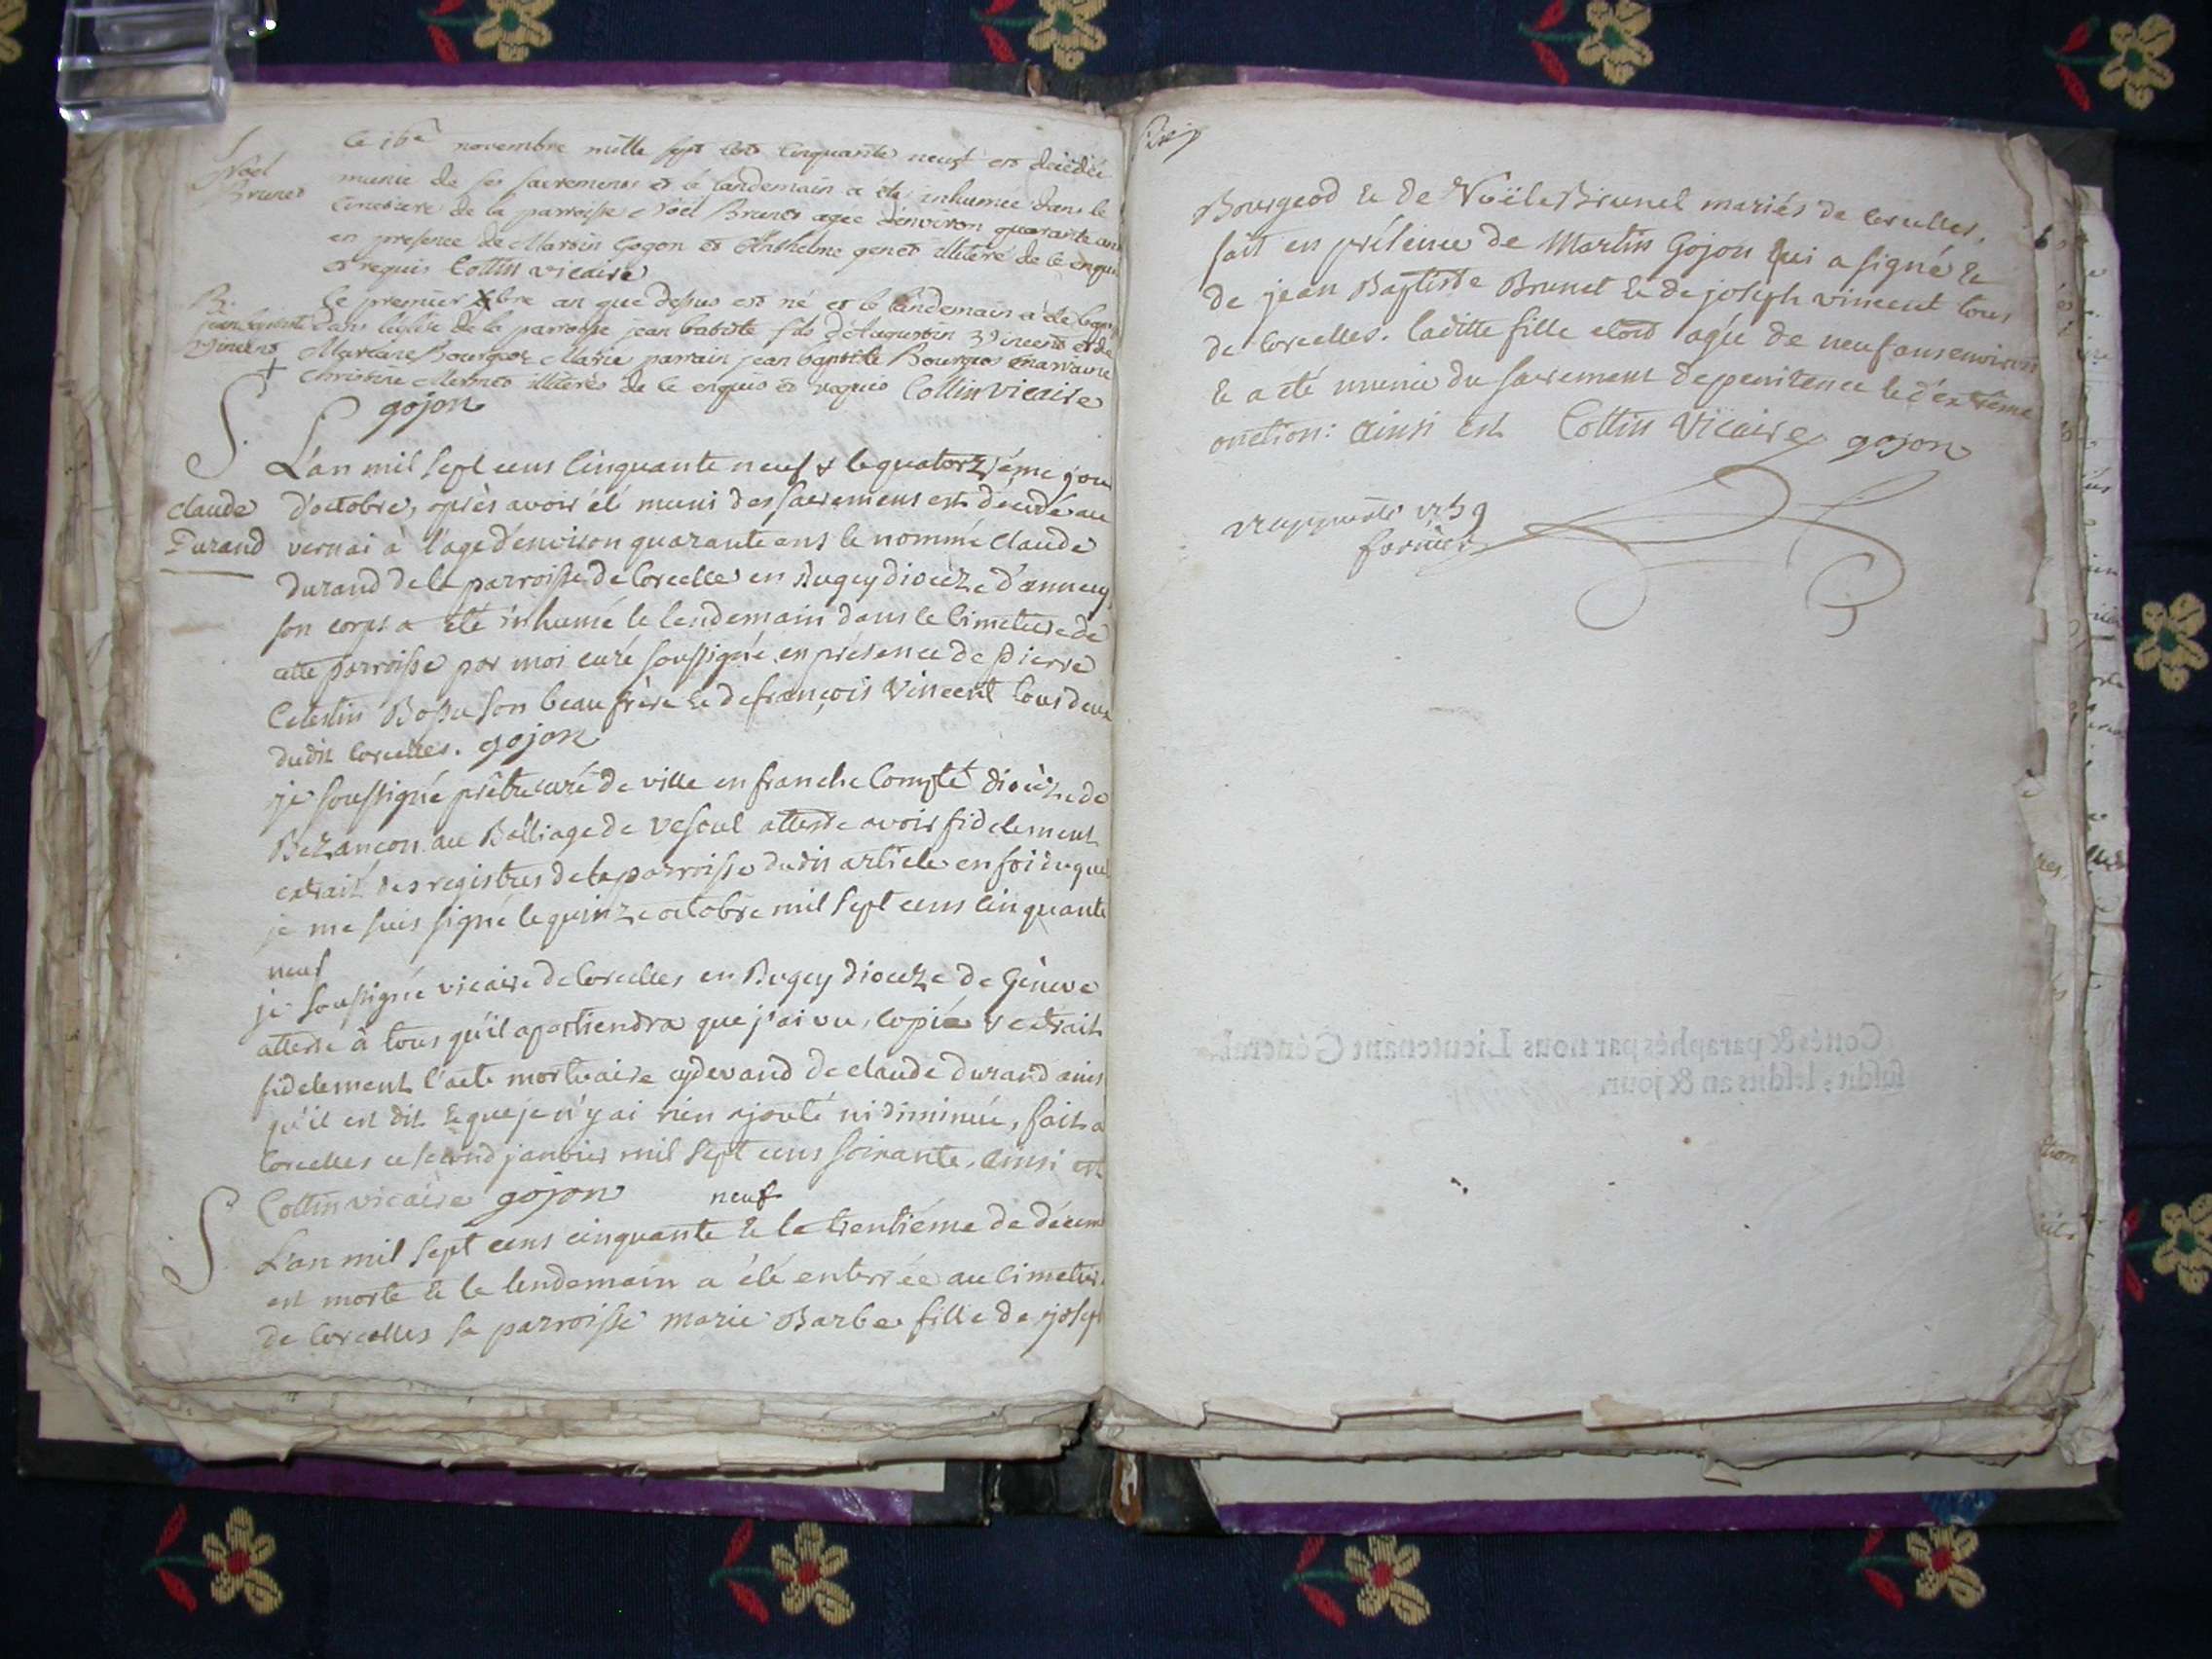 Le 16e novembre mille sept cent cinquante neuf est decedée
Noël
Brunet
munie de ses sacrements et le landemain a été inhumée dans le
cimetiere de la parroisse Noël Brunet agée d'environ quarante ans
en presence de Martin Gogon et Anthelme genet illiteré de ce enquis
et requis Collin vicaire
B.
jean baptiste
Vincent
+
Le premier Xbre an que dessus est né et le landemain a été bap
dans l'église de la parroisse jean batiste fils d'Augustin Vincent et de
Marianne Bourgeoz Marié parrain jean baptiste Bourgeos marraine
Christine illiterés de ce enquis et requis Collin vicaire
gojon
S.
claude
Durand
L'an mil sept cens cinquante neuf & le quatorziéme jour
d'octobre, après avoir été muni des sacremens est decedé au
vernai à l'age d'environ quarante ans le nommé claude
durand de la parroisse de Corcelles en Bugey diocèze d'annecy,
son corps a été inhumé le lendemain dans le cimetiere de
cette parroisse par moi curé soussigné en présence de pierre
Celestin Bossu son beau frère & de françois Vincent tous deux
dudit Corcelles. gojon
je soussigné prêtre curé de ville en franche Compté diocèze de
Bezançon au Balliage de Vesoul atteste avoir fidelement
extrait des registres de la parroisse dudit article en foi duquel
je me suis signé le quinze octobre mil sept cens cinquante
neuf
je soussigné vicaire de Corcelles en Bugey diocèze de Gèneve
atteste à tous qu'il apartiendra que j'ai vu, copié & extrait
fidelement l'acte mortuaire cydevand de claude durand ainsi
qu'il est dit & que je n'y ai rien ajouté ni diminué, fait a
Corcelles ce second janvier mil sept cens soixante, ainsi est
Collin vicaire gojon
neuf
S.
L'an mil sept cens cinquante & le trentiéme de décem
est morte & le lendemain a été enterrée au cimetier
de Corcelles sa parroisse marie Barbe fille de joseph
Bourgeod & de Noële Brunel mariés de Corcelles,
fait en présence de Martin Gojon qui a signé &
de jean Baptiste Brunet & de joseph vincent tous
de Corcelles. laditte fille etoit agée de neuf ans environ
& a été munie du sacrement de penitence & d'extrême
onction: ainsi est Collin Vicaire gojon
Cottés & paraphés par nous Lieutenant Général
susdit, lesdits an & jour.